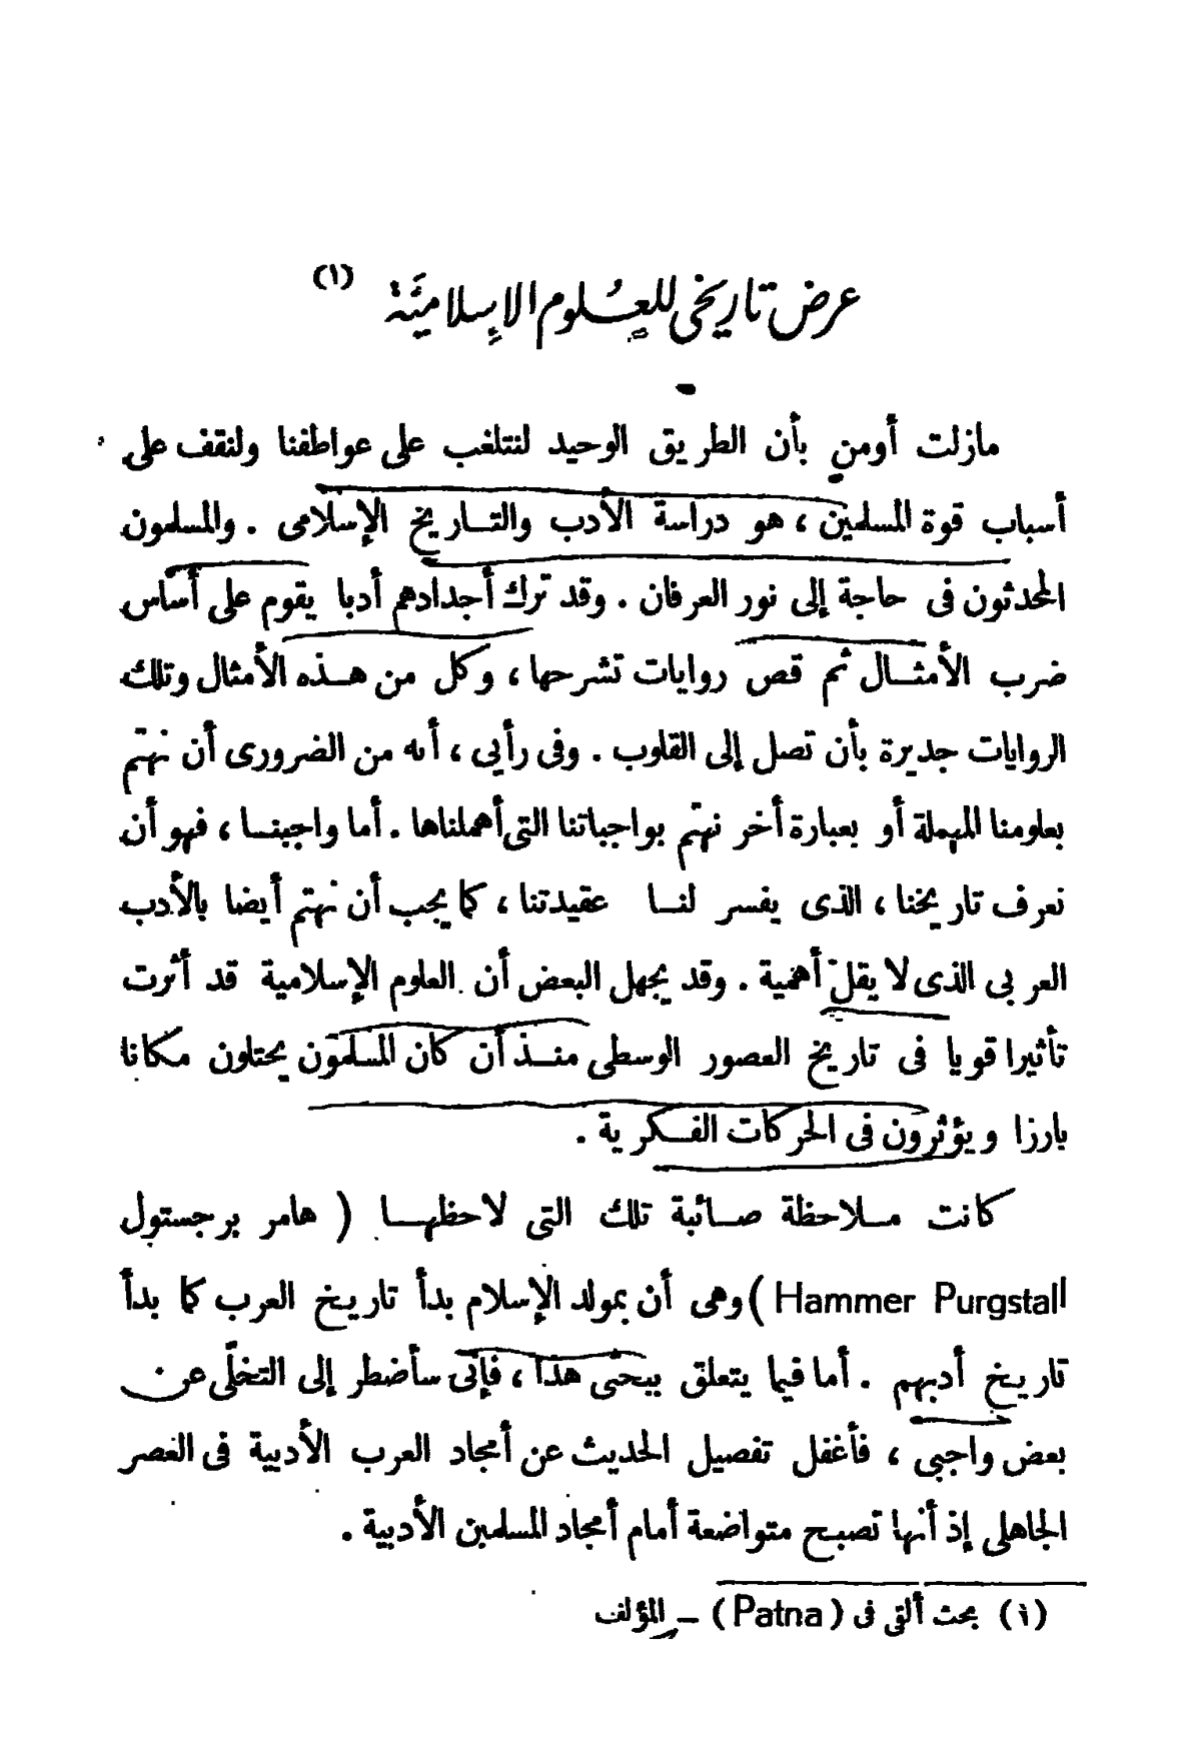 عرض تاريخى للعلوم الإسلامية (١)
مازلت أومن بأن الطريق الوحيد لنتلغب على عواطفنا ولنقف على
أسباب قوة المسلمين ، هو دراسة الأدب والتاريخ الإسلامى . والمسلمون
المحدثون فى حاجة إلى نور العرفان . وقد ترك أجدادهم أدبا يقوم على أساس
ضرب الأمثال ثم قص روايات تشرحها ، وكل من هذه الأمثال وتلك
الروايات جديرة بأن تصل إلى القلوب . وفى رأيى ، أنه من الضرورى أن نهتم
بعلومنا المهملة أو بعبارة أخر نهتم بواجباتنا التى أهملناها . أما واجبنا ، فهو أن
نعرف تاريخنا ، الذى يفسر لنا عقيدتنا ، كما يجب أن نهتم أيضا بالأدب
العربى الذى لا يقل أهمية . وقد يجهل البعض أن العلوم الإسلامية قد أثرت
تأثيرا قويا فى تاريخ العصور الوسطى منذ أن كان المسلمون يحتلون مكانا
بارزا ويؤثرون فى الحركات الفكرية .
كانت ملاحظة صائبة تلك التى لاحظها ( هامر برجستول
Hammer Purgstall ) وهى أن بمولد الإسلام بدأ تاريخ العرب كما بدأ
تاريخ أدبهم . أما فيما يتعلق ببحثى هذا ، فإنى سأضطر إلى التخلّى عن
بعض واجبى ، فأغفل تفصيل الحديث عن أمجاد العرب الأدبية فى العصر
الجاهلى إذ أنها تصبح متواضعة أمام أمجاد المسلمين الأدبية .
(١) بحث ألقى فى (Patna) – المؤلف